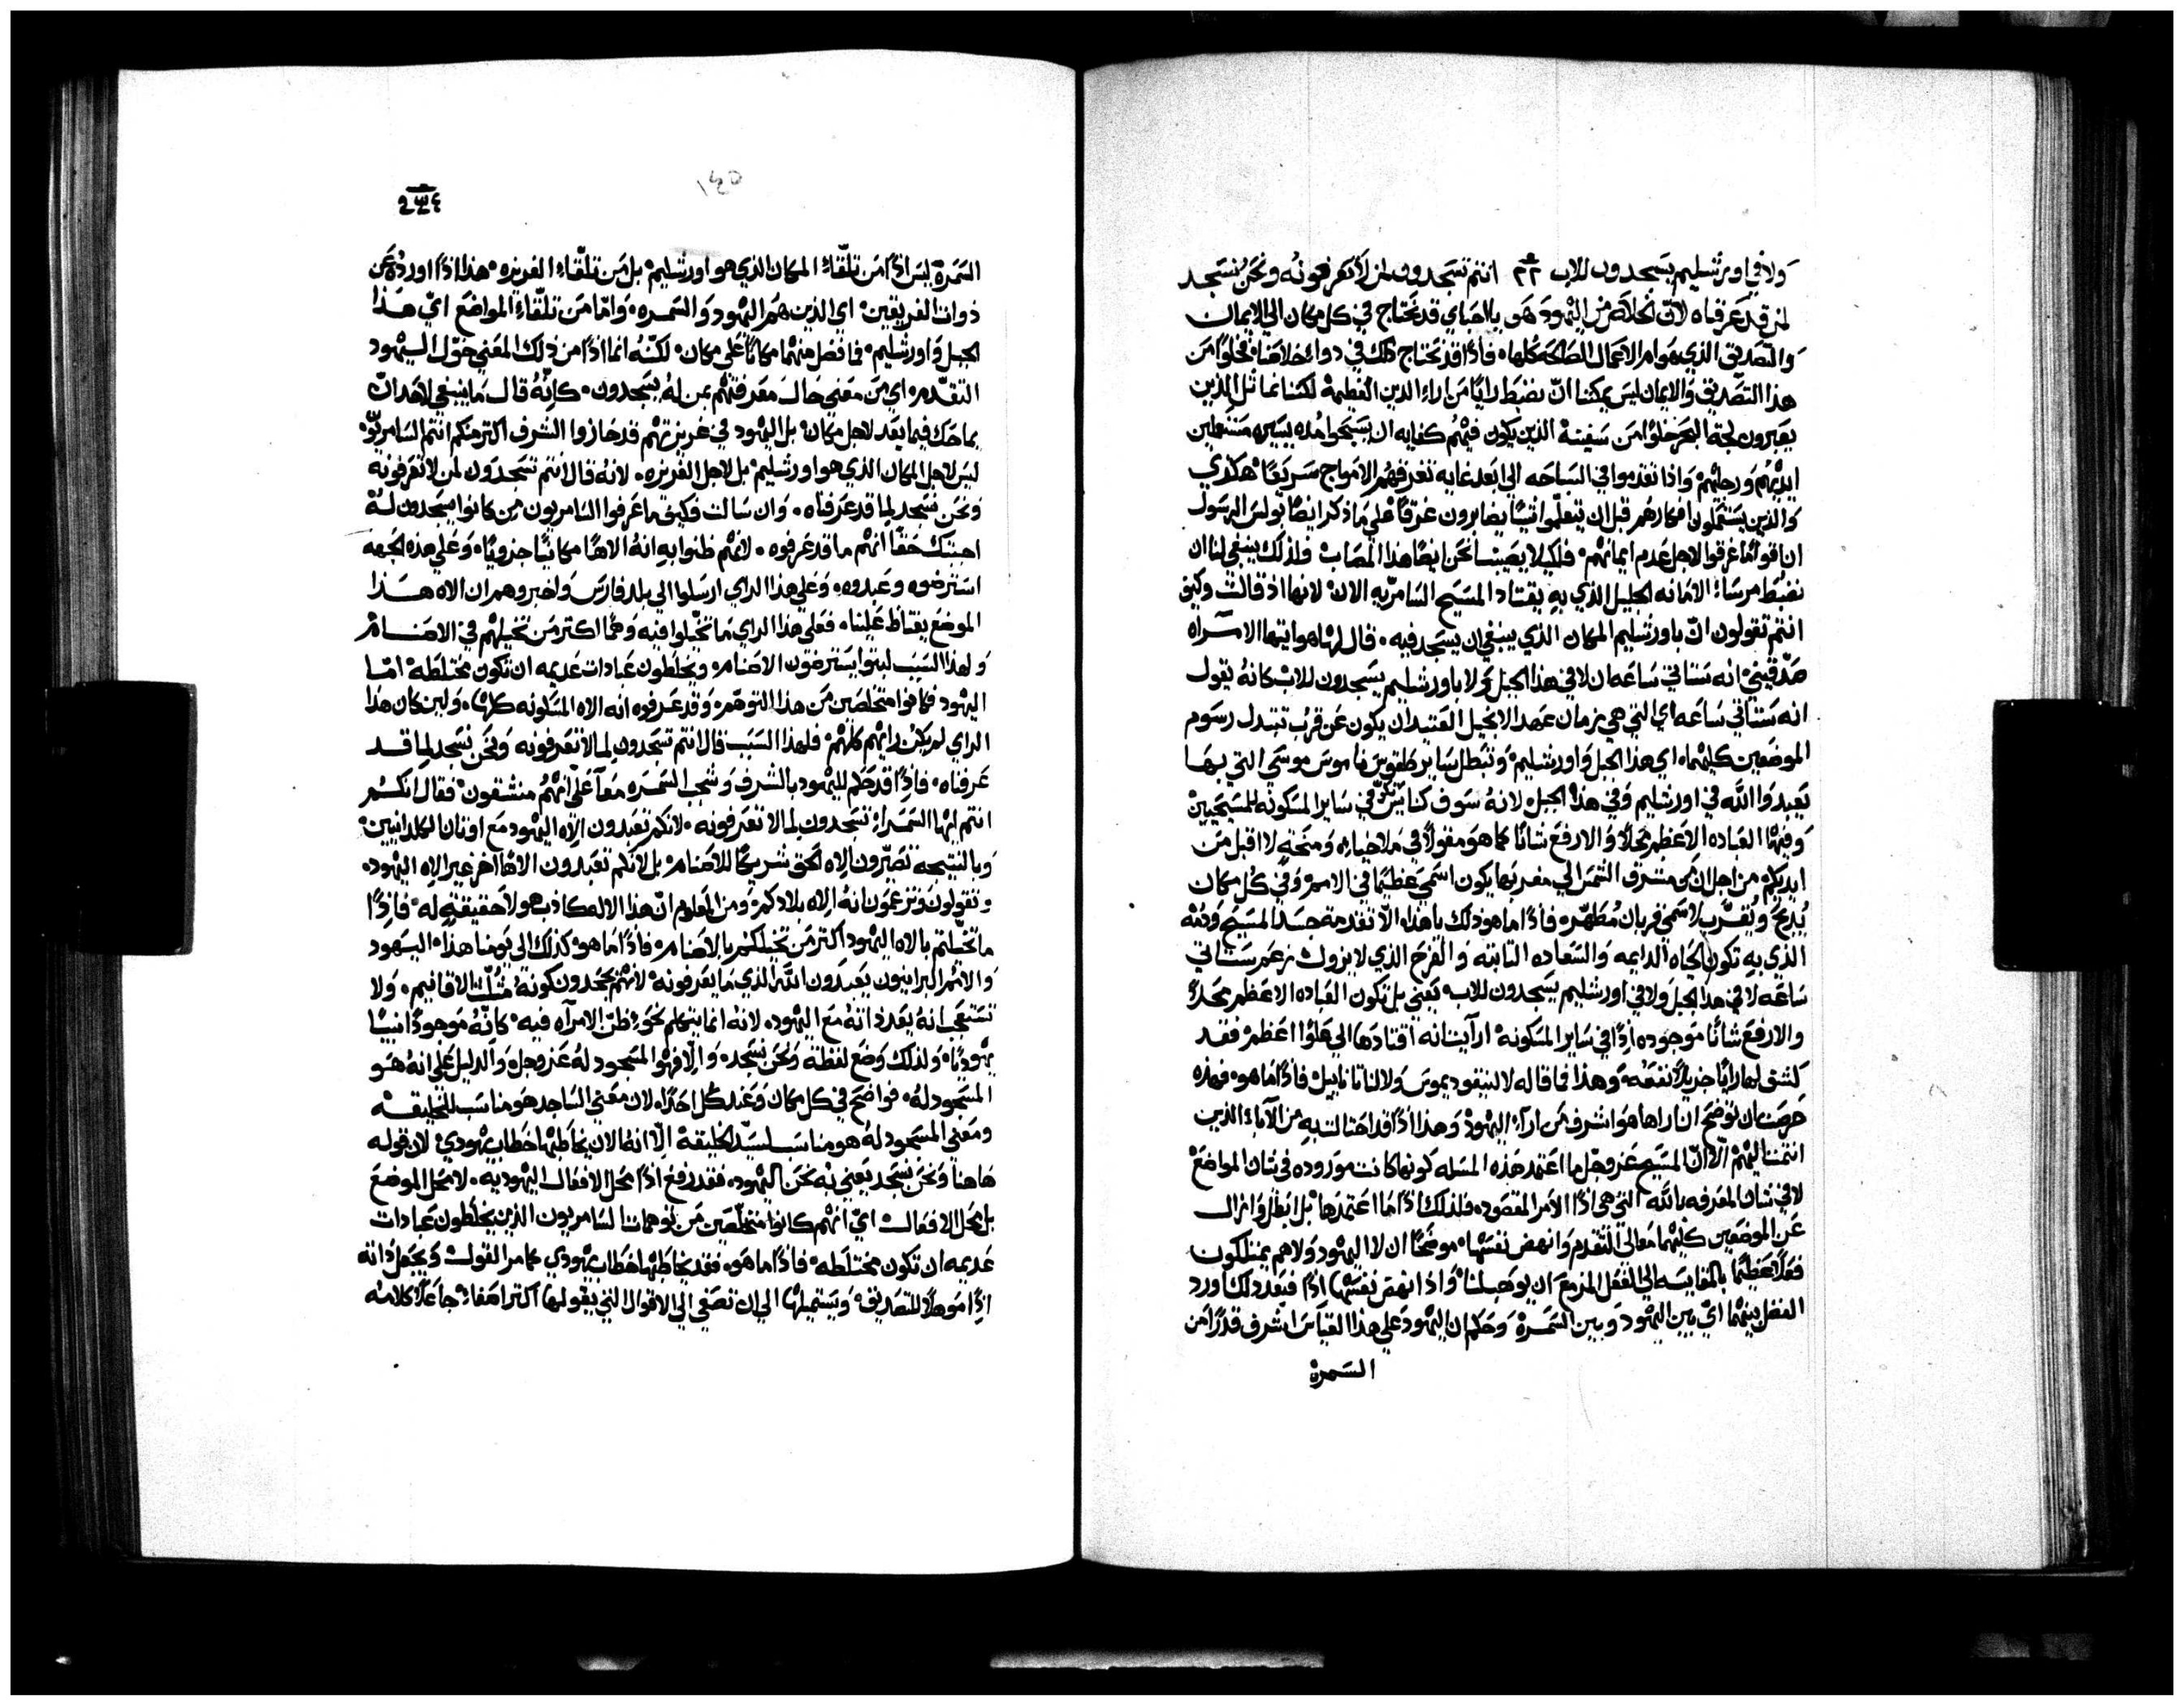 ولا في اورشليم يسجدون للاب ٢٢ انتم تسجدون لمن لا تعرفونه ونحن نسجد
لمن قد عرفناه لان الخلاص من اليهود هو يا احباي قد نحتاج في كل مكان الى الايمان
والتصديق الذي هو ام الاعمال الصالحه كلها فاذًا قد نحتاج ذلك في دواء خلاصنا فخلوًا من
هذا التصديق والايمان ليس يمكننا ان نضبط رايًا من اراء الدين العظيمة لكننا نماثل الذين
يعبرون لجة البحر خلوًا من سفينة الذين يكون فيهم كفايه ان يسبحوا مده يسيره مستعملين
ايديهم ورجليهم واذا تقدموا في السباحه الى ابعد غايه تغرقهم الامواج سريعًا هكذي
والذين يستعملون افكارهم قبل ان يتعلموا شيًا يصابرون غرقًا على ما ذكر ايضًا بولس الرسول
ان اقوامًا غرقوا لاجل عدم ايمانهم فلكيلا يصيبنا نحن ايضًا هذا المصاب فلذلك ينبغي لنا ان
نضبط مرساة الامانه الجليل الذي به يقتاد المسيح السامريه الان لانها اذ قالت وكيف
انتم تقولون انّ باورشليم المكان الذي ينبغي ان يسجد فيه قال لها هو ايتها الامراه
صدقيني انه ستاتي ساعه ان لا في هذا الجبل ولا باورشليم يسجدون للاب كانهُ يقول
انه ستاتي ساعه اي التي هي زمان عهد الانجيل العتيد ان يكون عن قرب تتبدل رسوم
الموضعين كليهما اي هذا الجبل واورشليم وتبطل ساير طقوس ناموس موسى التي بها
يعبدوا الله في اورشليم وفي هذا الجبل لانهُ سوف تكون كنايس في ساير المسكونه للمسيحيين
وفيها العباده الاعظم محلًا والارفع شانًا كما هو مقولًا في ملاخيا ومنحة لا اقبل من
ايديكم من اجل ان من مشرق الشمس الى مغربها يكون اسمي عظيمًا في الامم وفي كل مكان
يُذبح ويُقرّب لاسمي قربان مُطهّر فاذًا ما هو ذلك يا هذا الّا تقدمة جسد المسيح ودمه
الذي به تكون الحياه الدايمه والسعاده الثابته والفرح الذي لا يزول زعم ستاتي
ساعه لا في هذا الجبل ولا في اورشليم يسجدون للاب يعني بل تكون العباده الاعظم محلًا
والارفع شانًا موجوده اذًا في ساير المسكونه ارايت انه اقتادها الى علوًا اعظم فقد
كشف لها رايًا جزيلًا نفعه وهذا فما قاله لا لنيقوديموس ولا لناثانائيل فاذًا ما هو فهذه
حرصت ان توضح ان اراها هو اشرف من اراء اليهود وهذا اذًا قد احتالت به من الآباء الذين
انتمت اليهم الّا انّ المسيح عزوجل ما اعتمد هذه المسله كونها كانت موروده في شان المواضع
لا في شان المعرفه بالله التي هي اذًا الامر المقصود فلذلك اذًا ما اعتمدها بل ابطل وازال
عن الموضعين كليهما معالي التقدم وانهض نفسها موضحًا ان لا اليهود ولا هم يمتلكون
فعلًا عظيمًا بالمقايسه الى الفعل المزمع ان يوهب لنا واذ انهض نفسها اذًا فبعد ذلك اورد
الفضل بينهما اي بين اليهود وبين السمرة وحكم ان اليهود على هذا القياس اشرف قدرًا من
السمرة
١٤٥
٢٣٤
السمرة ليس اذًا من تلقاء المكان الذي هو اورشليم بل من تلقاء الغريزه هذا اذًا اورده عن
ذوات الفريقين اي الذين هم اليهود والسمره وامّا من تلقاء المواضع اي هذا
الجبل واورشليم فما فضل منهما مكانًا على مكان لكنّه انما اذًا من ذلك المعني خوّل اليهود
التقدم اي من معني حال معرفتهم بمن له يسجدون كانهُ قال ما ينبغي لاحد ان
يماحك فيما بعد لاجل مكان بل اليهود في غريزتهم قد حازوا الشرف اكثر منكم انتم السامريّون
ليس لاجل المكان الذي هو اورشليم بل لاجل الغريزه لانهُ قال انتم تسجدون لمن لا تعرفونه
ونحن نسجد لما قد عرفناه وان سالت فكيف ما عرفوا السامريون من كانوا يسجدون لهُ
اجبتك حقًا انهم ما قد عرفوه لانهم ظنوا به انهُ الاهًا مكانيًا جزويًا وعلى هذه الجهه
استرضوه وعبدوه وعلى هذا الراي ارسلوا الى بلد فارس واخبروهم ان الاه هذا
الموضع يغتاظ علينا فعلى هذا الراي ما تخيلوا فيه وهمًا اكثر من تخيلهم في الاصنام
ولهذا السبب لبثوا يسترضون الاصنام ويخلطون عبادات عديمه ان تكون مختلطه امّا
اليهود فكانوا متخلصين من هذا التوهم وقد عرفوه انه الاه المسكونه كلها ولين كان هذا
الراي لم يكن رايهم كلهم فلهذا السبب قال انتم تسجدون لما لا تعرفونه ونحن نسجد لما قد
عرفناه فاذًا قد حكم لليهود بالشرف وشجب السمره معًا على انهم منشقون فقال انكم
انتم ايها السمراء تسجدون لما لا تعرفونه لانكم تعبدون الاه اليهود مع اوثان الكلدانيين
وبالنتيجه تصيّرون الاه الحق شريكًا للاصنام بل لانكم تعبدون الاهًا اخر غير الاه اليهود
وتقولون وتزعمون انهُ الاه بلادكم ومن المعلوم انّ هذا الاله كاذب هو لا حقيقة له فاذًا
ما تخيّلتم بالاه اليهود اكثر من تخيلكم بالاصنام فاذًا ما هو كذلك الى يومنا هذا اليهود
والامم البرانيون يعبدون الله الذي ما يعرفونه لانهم يجحدون كونهُ مثلّث الاقانيم ولا
تستعجب انهُ يعدد ذاتهُ مع اليهود لانه انما يتكلم نحو ظن الامراه فيه كانّهُ موجودًا نبيًا
يهوديًا ولذلك وضع لفظة ونحن نسجد والّا فهو المسجود لهُ عز وجل والدليل على انهُ هو
المسجود لهُ فواضح في كل مكان وعند كُل احدًا لان معني الساجد هو مناسب للخليقه
ومعني المسجود لهُ هو مناسب لسيد الخليقة الّا انهُ الان يخاطبها خطاب يهودي لان قوله
هاهنا ونحن نسجد يعني به نحن اليهود فقد رفع اذًا محل الافعال اليهوديه لا محل الموضع
بل محل الافعال اي انهم كانوا متخلّصين من توهمات السامريون الذين يخلطون عبادات
عديمه ان تكون مختلطه فاذًا ما هو فقد يخاطبها خطاب يهودي كما مر القول ويجعل ذاته
اذًا موهلًا للتصديق ويستميلها الى ان تصغي الى الاقوال التي يقولها اكثر اصغاء جاعلًا كلامه